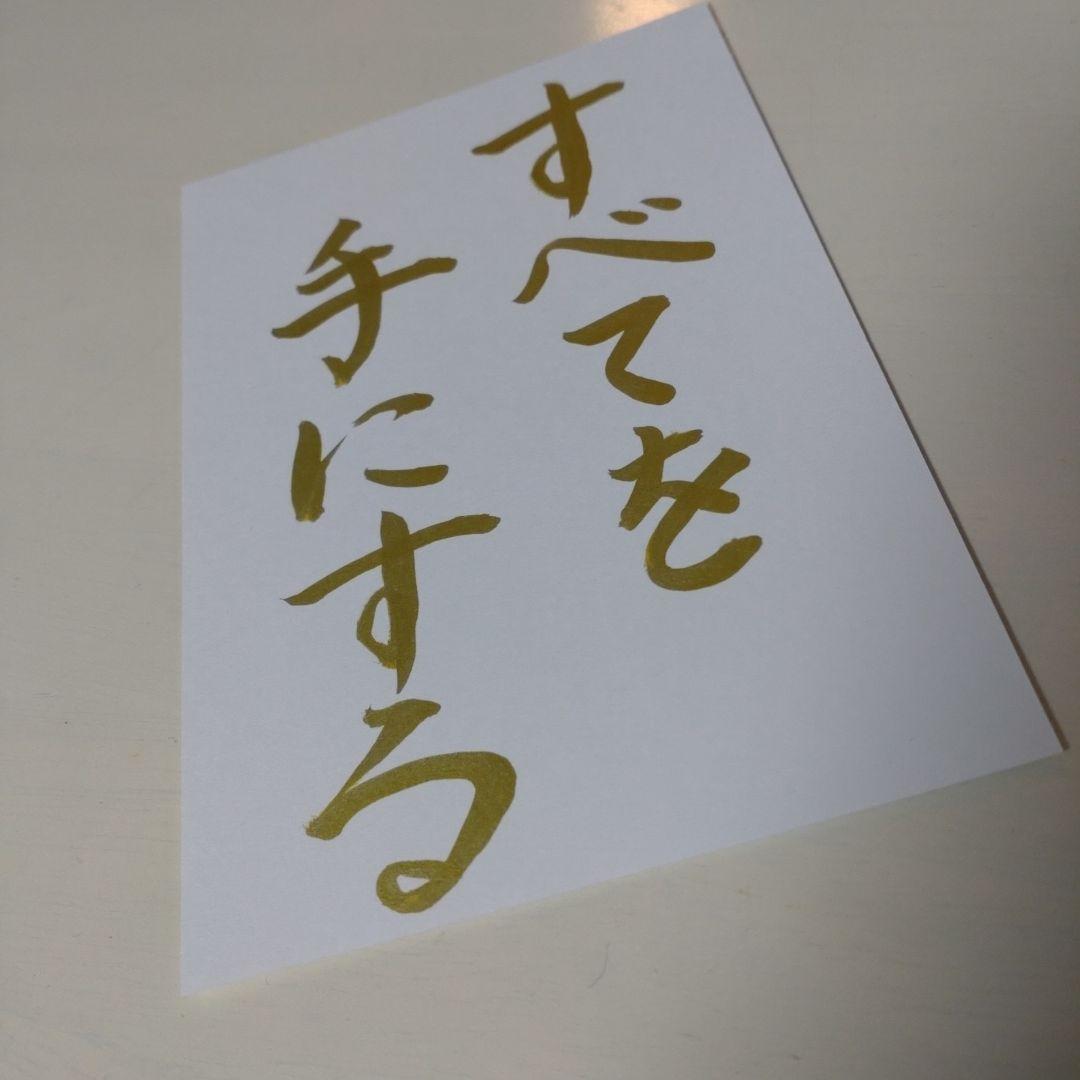 すべてを
手にする